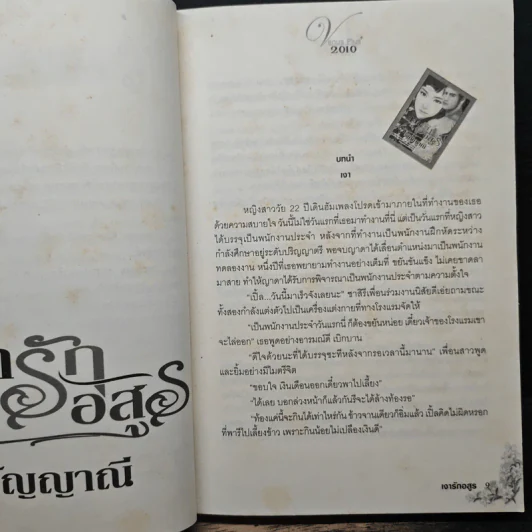 ารัก
อสูร
ัญญาณี
2010
บทนำ
เงา
หญิงสาววัย 22 ปีเดินฮัมเพลงโปรดเข้ามาภายในที่ทำงานของเธอ
ด้วยความสบายใจ วันนี้ไม่ใช่วันแรกที่เธอมาทำงานที่นี่ แต่เป็นวันแรกที่หญิงสาว
ได้บรรจุเป็นพนักงานประจำ หลังจากที่ทำงานเป็นพนักงานฝึกหัดระหว่าง
กำลังศึกษาอยู่ระดับปริญญาตรี พอจบญาดาได้เลื่อนตำแหน่งมาเป็นพนักงาน
ทดลองงาน หนึ่งปีที่เธอพยายามทำงานอย่างเต็มที่ ขยันขันแข็ง ไม่เคยขาดลา
มาสาย ทำให้ญาดาได้รับการพิจารณาเป็นพนักงานประจำตามความตั้งใจ
“เปิ้ล...วันนี้มาเร็วจังเลยนะ” ชาสิรีเพื่อนร่วมงานนิสัยดีเอ่ยถามขณะ
ทั้งสองกำลังแต่งตัวไปเป็นเครื่องแต่งกายที่ทางโรงแรมจัดให้
“เป็นพนักงานประจำวันแรกนี่ ก็ต้องขยันหน่อย เดี๋ยวเจ้าของโรงแรมเขา
จะไล่ออก” เธอพูดอย่างอารมณ์ดี เบิกบาน
“ดีใจด้วยนะที่ได้บรรจุซะทีหลังจากรอเวลานี้มานาน” เพื่อนสาวพูด
และยิ้มอย่างมีไมตรีจิต
“ขอบใจ เงินเดือนออกเดี๋ยวพาไปเลี้ยง”
“ได้เลย บอกล่วงหน้าก็แล้วกันรีจะได้ล้างท้องรอ”
“ท้องแค่นี้จะกินได้เท่าไหร่กัน ข้าวจานเดียวก็อิ่มแล้ว เปิ้ลคิดไม่ผิดหรอก
ที่พารีไปเลี้ยงข้าว เพราะกินน้อยไม่เปลืองเงินดี”
เงารักอสูร 9